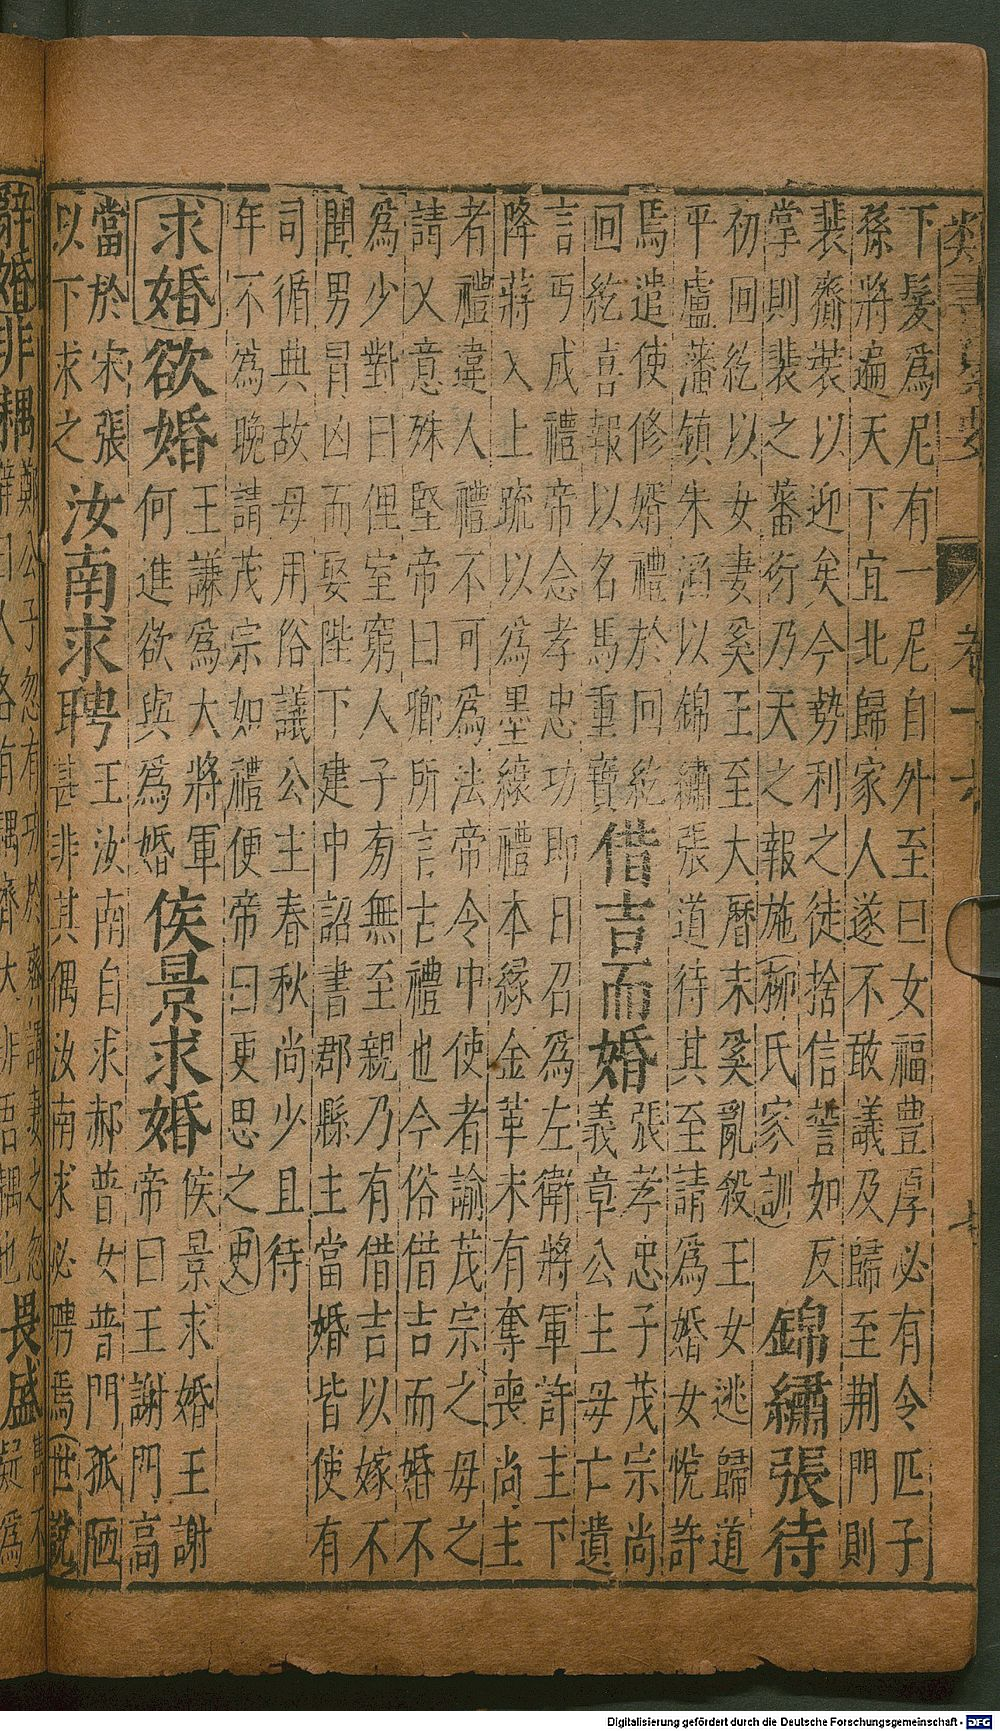 下髮爲尼有一尼自外至曰女福豊厚必有令匹子
孫將遍天下宜北歸家人遂不敢議及歸至荆門則
裴齎裝以迎矣今勢利之徒捨信誓如反
掌則裴之蕃衍乃天之報施柳氏家訓
錦繡張待
初回紇以女妻奚王至大曆末奚亂殺王女逃歸道
平盧藩鎮朱滔以錦繡張道待其至請爲婚女悅許
焉遣使修婿禮於回紇
回紇喜報以名馬重寶
借吉而婚
張孝忠子茂宗尚
義章公主母亡遺
言丐成禮帝念孝忠功即日召爲左衛將軍許主下
降蔣乂上疏以爲墨縗禮本緣金革未有奪喪尚主
者禮違人禮不可爲法帝令中使者諭茂宗之母之
請乂意殊堅帝曰卿所言古禮也今俗借吉而婚不
爲少對曰俚室窮人子旁無至親乃有借吉以嫁不
聞男冒凶而娶陛下建中詔書郡縣主當婚皆使有
司循典故毋用俗議公主春秋尚少且待
年不爲晚請茂宗如禮便帝曰更思之史
求婚
欲婚
王謙爲大將軍
何進欲與爲婚
侯景求婚
侯景求婚王謝
帝曰王謝門高
當於宋張
以下求之
汝南求聘
王汝南自求郝普女普門孤陋
甚非其偶汝南求必聘焉世說
辭婚
非耦
鄭公子忽有功於齊謂妻之忽不
辭曰人各有耦齊大非吾耦也
畏盛
雋不
疑爲
卷十六
Digitalisierung gefördert durch die Deutsche Forschungsgemeinschaft - DFG